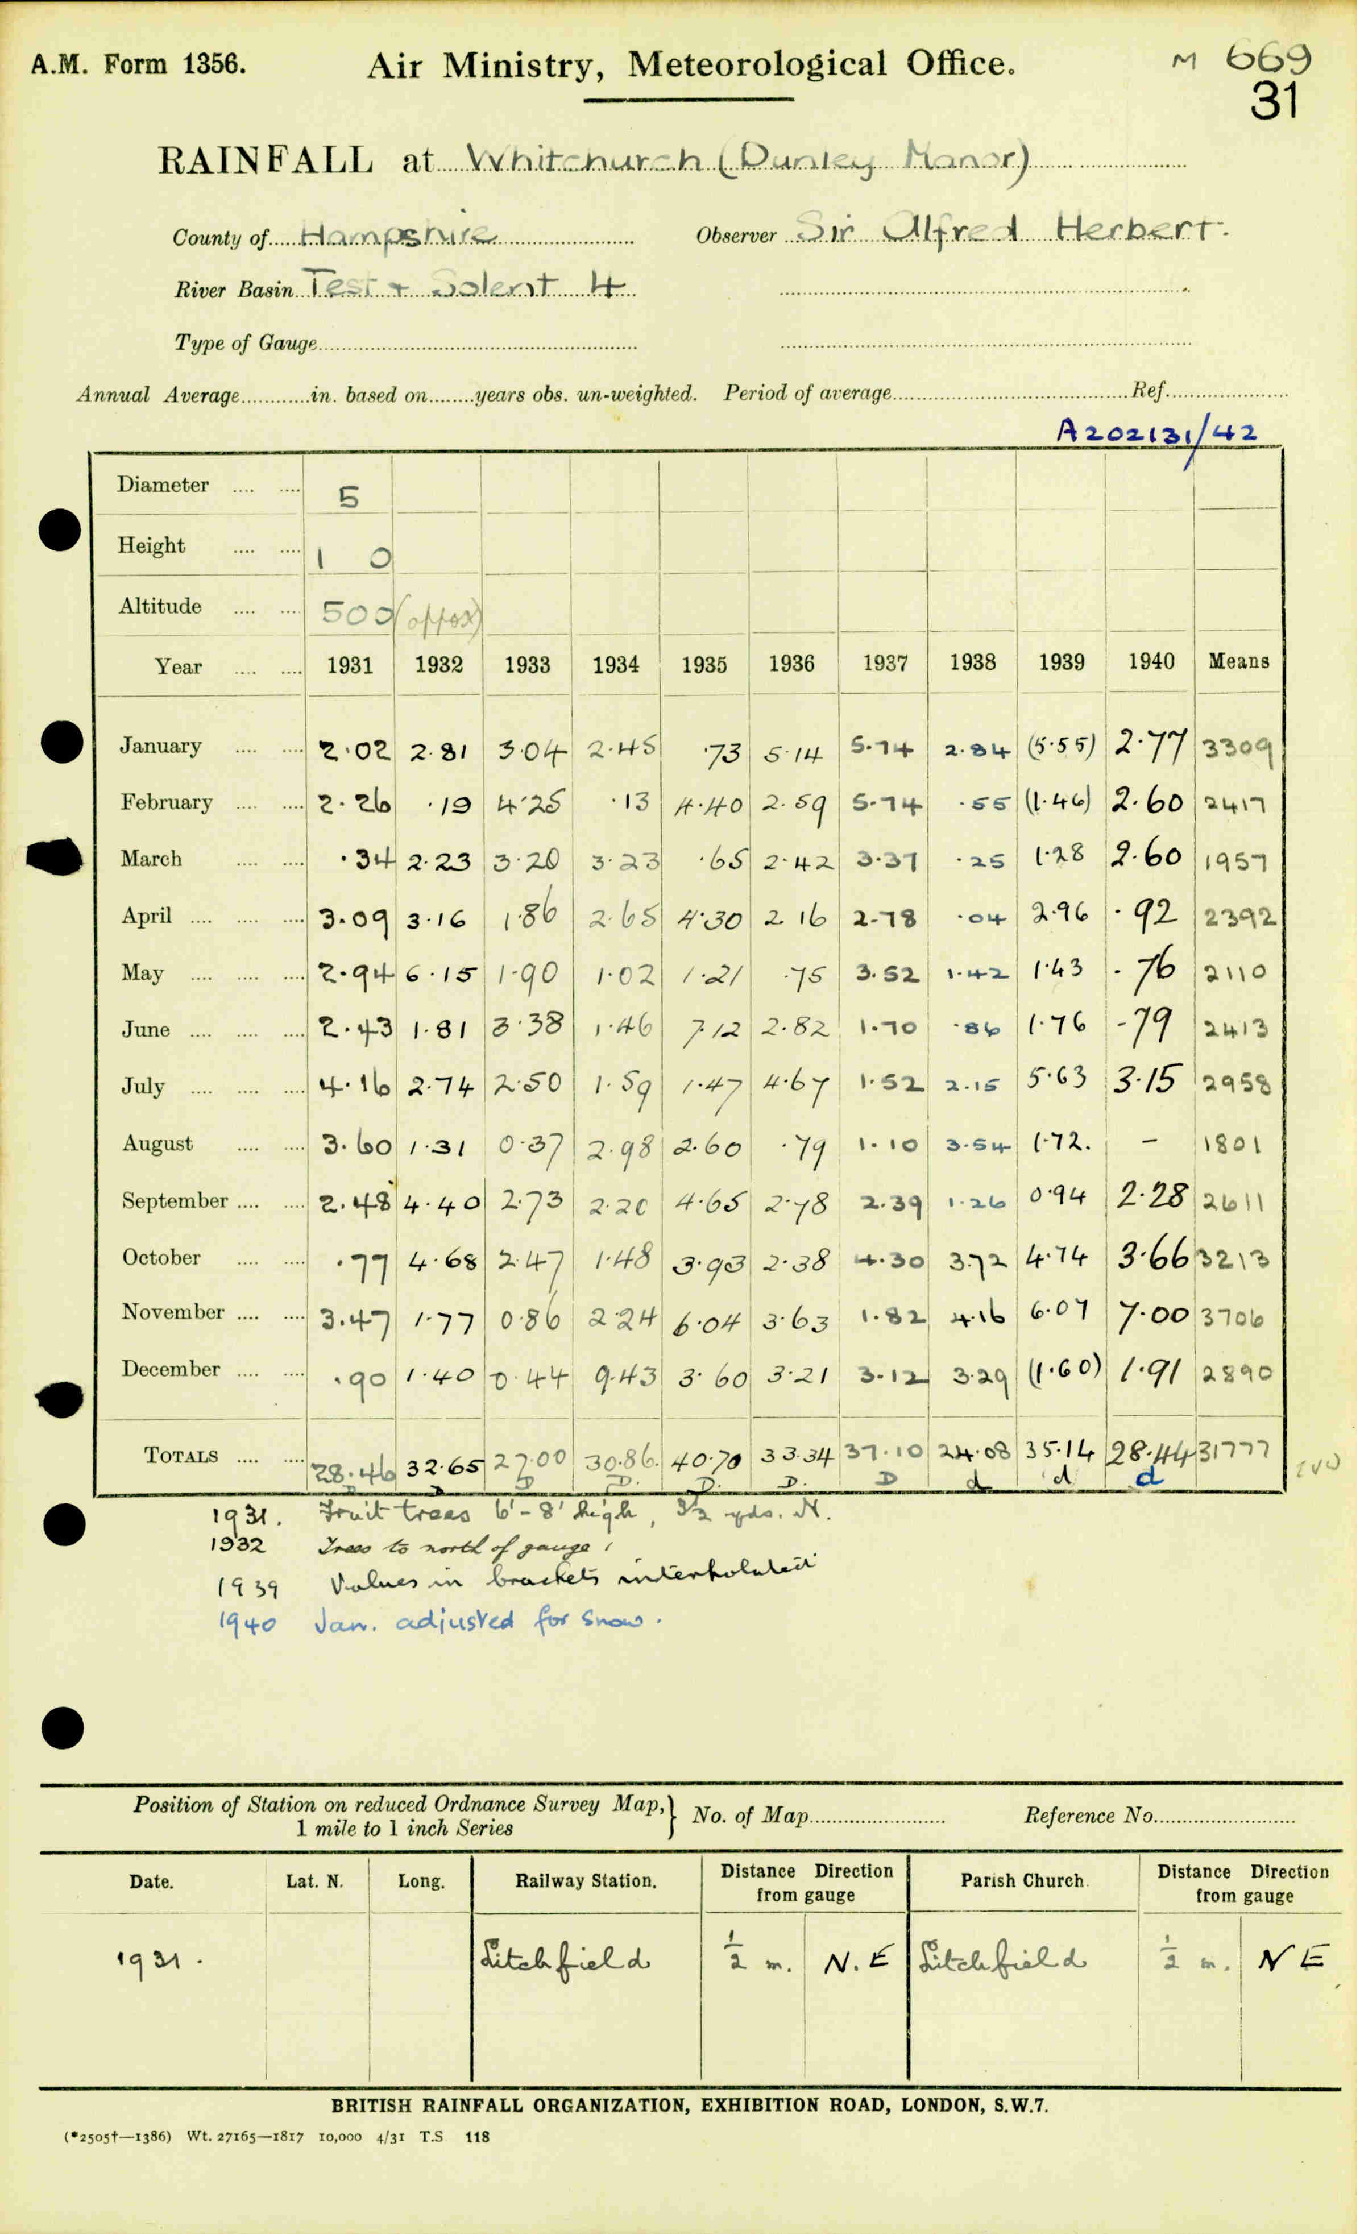 A.M. Form 1356. Air Ministry, Meteorological Office. M 669
31
RAINFALL at Whitchurch (Dunley Manor)
County of Hampshire Observer Sir Alfred Herbert.
River Basin Test + Solent 4
Type of Gauge
Annual Average in. based on years obs. un-weighted. Period of average Ref.
A202131/42
Diameter 5
Height 1 0
Altitude 500 (approx)
Year 1931 1932 1933 1934 1935 1936 1937 1938 1939 1940 Means
January 2.02 2.81 3.04 2.45 .73 5.14 5.74 2.84 (5.55) 2.77 3309
February 2.26 .19 4.25 .13 4.40 2.59 5.74 .55 (1.46) 2.60 2417
March .34 2.23 3.20 3.23 .65 2.42 3.37 .25 1.28 2.60 1957
April 3.09 3.16 1.86 2.65 4.30 2.16 2.78 .04 2.96 .92 2392
May 2.94 6.15 1.90 1.02 1.21 .75 3.52 1.42 1.43 .76 2110
June 2.43 1.81 3.38 1.46 7.12 2.82 1.70 .86 1.76 .79 2413
July 4.16 2.74 2.50 1.59 1.47 4.67 1.52 2.15 5.63 3.15 2958
August 3.60 1.31 0.37 2.98 2.60 .79 1.10 3.54 1.72. – 1801
September 2.48 4.40 2.73 2.20 4.65 2.78 2.39 1.26 0.94 2.28 2611
October .77 4.68 2.47 1.48 3.93 2.38 4.30 3.72 4.74 3.66 3213
November 3.47 1.77 0.86 2.24 6.04 3.63 1.82 4.16 6.07 7.00 3706
December .90 1.40 0.44 9.43 3.60 3.21 3.12 3.29 (1.60) 1.91 2890
TOTALS 28.46 32.65 27.00 30.86 40.70 33.34 37.10 24.08 35.14 28.44 31777
D D D D. D. D. D d d d
1931. Fruit trees 6'-8' high, 3½ yds. N.
1932 Trees to north of gauge
1939 Values in brackets interpolated
1940 Jan. adjusted for snow.
Position of Station on reduced Ordnance Survey Map, No. of Map Reference No.
1 mile to 1 inch Series
Date. Lat. N. Long. Railway Station. Distance Direction from gauge Parish Church. Distance Direction from gauge
1931. Litchfield ½ m. N.E Litchfield ½ m. N E
BRITISH RAINFALL ORGANIZATION, EXHIBITION ROAD, LONDON, S.W.7.
(*2505†—1386) Wt. 27165—1817 10,000 4/31 T.S 118